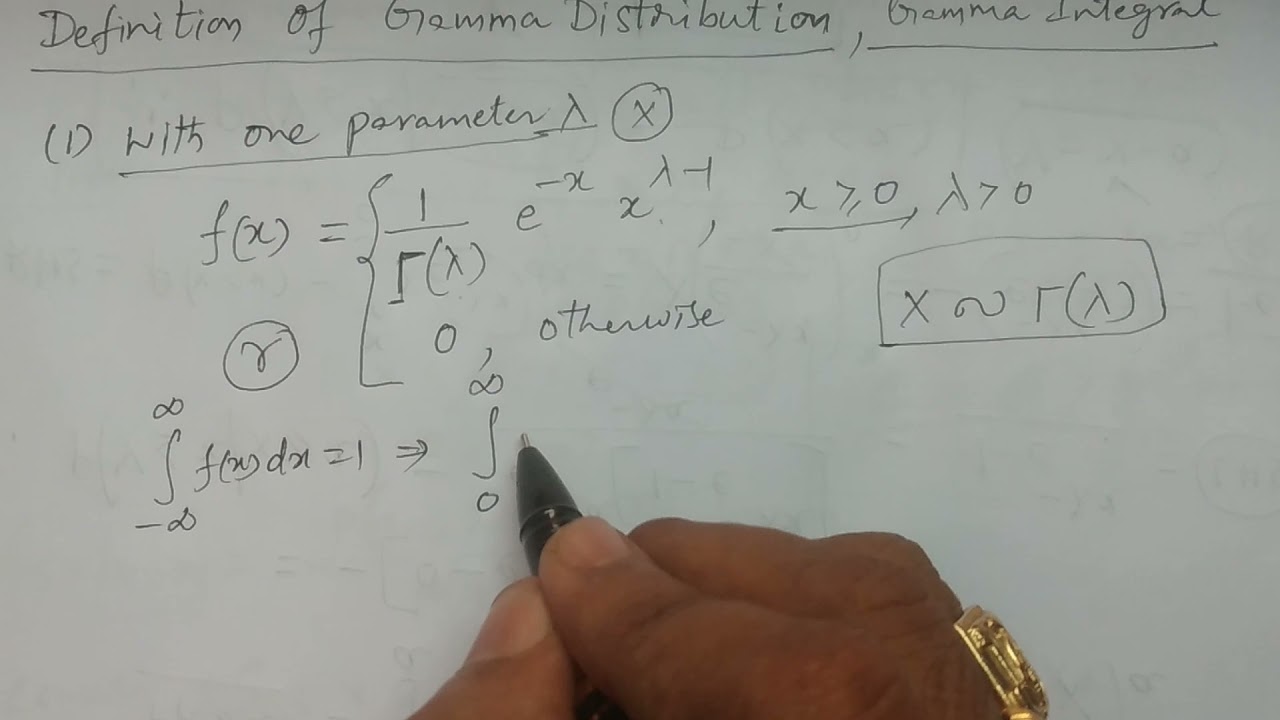 Definition Of Gamma Distribution, Gamma Integral
(1) With one parameter λ (X)
f(x) = { 1/Γ(λ) e^{-x} x^{λ-1}, x ≥ 0, λ > 0
0, otherwise
X ~ Γ(λ)
γ
∫_{-∞}^{∞} f(x) dx = 1 ⇒ ∫_{0}^{∞}